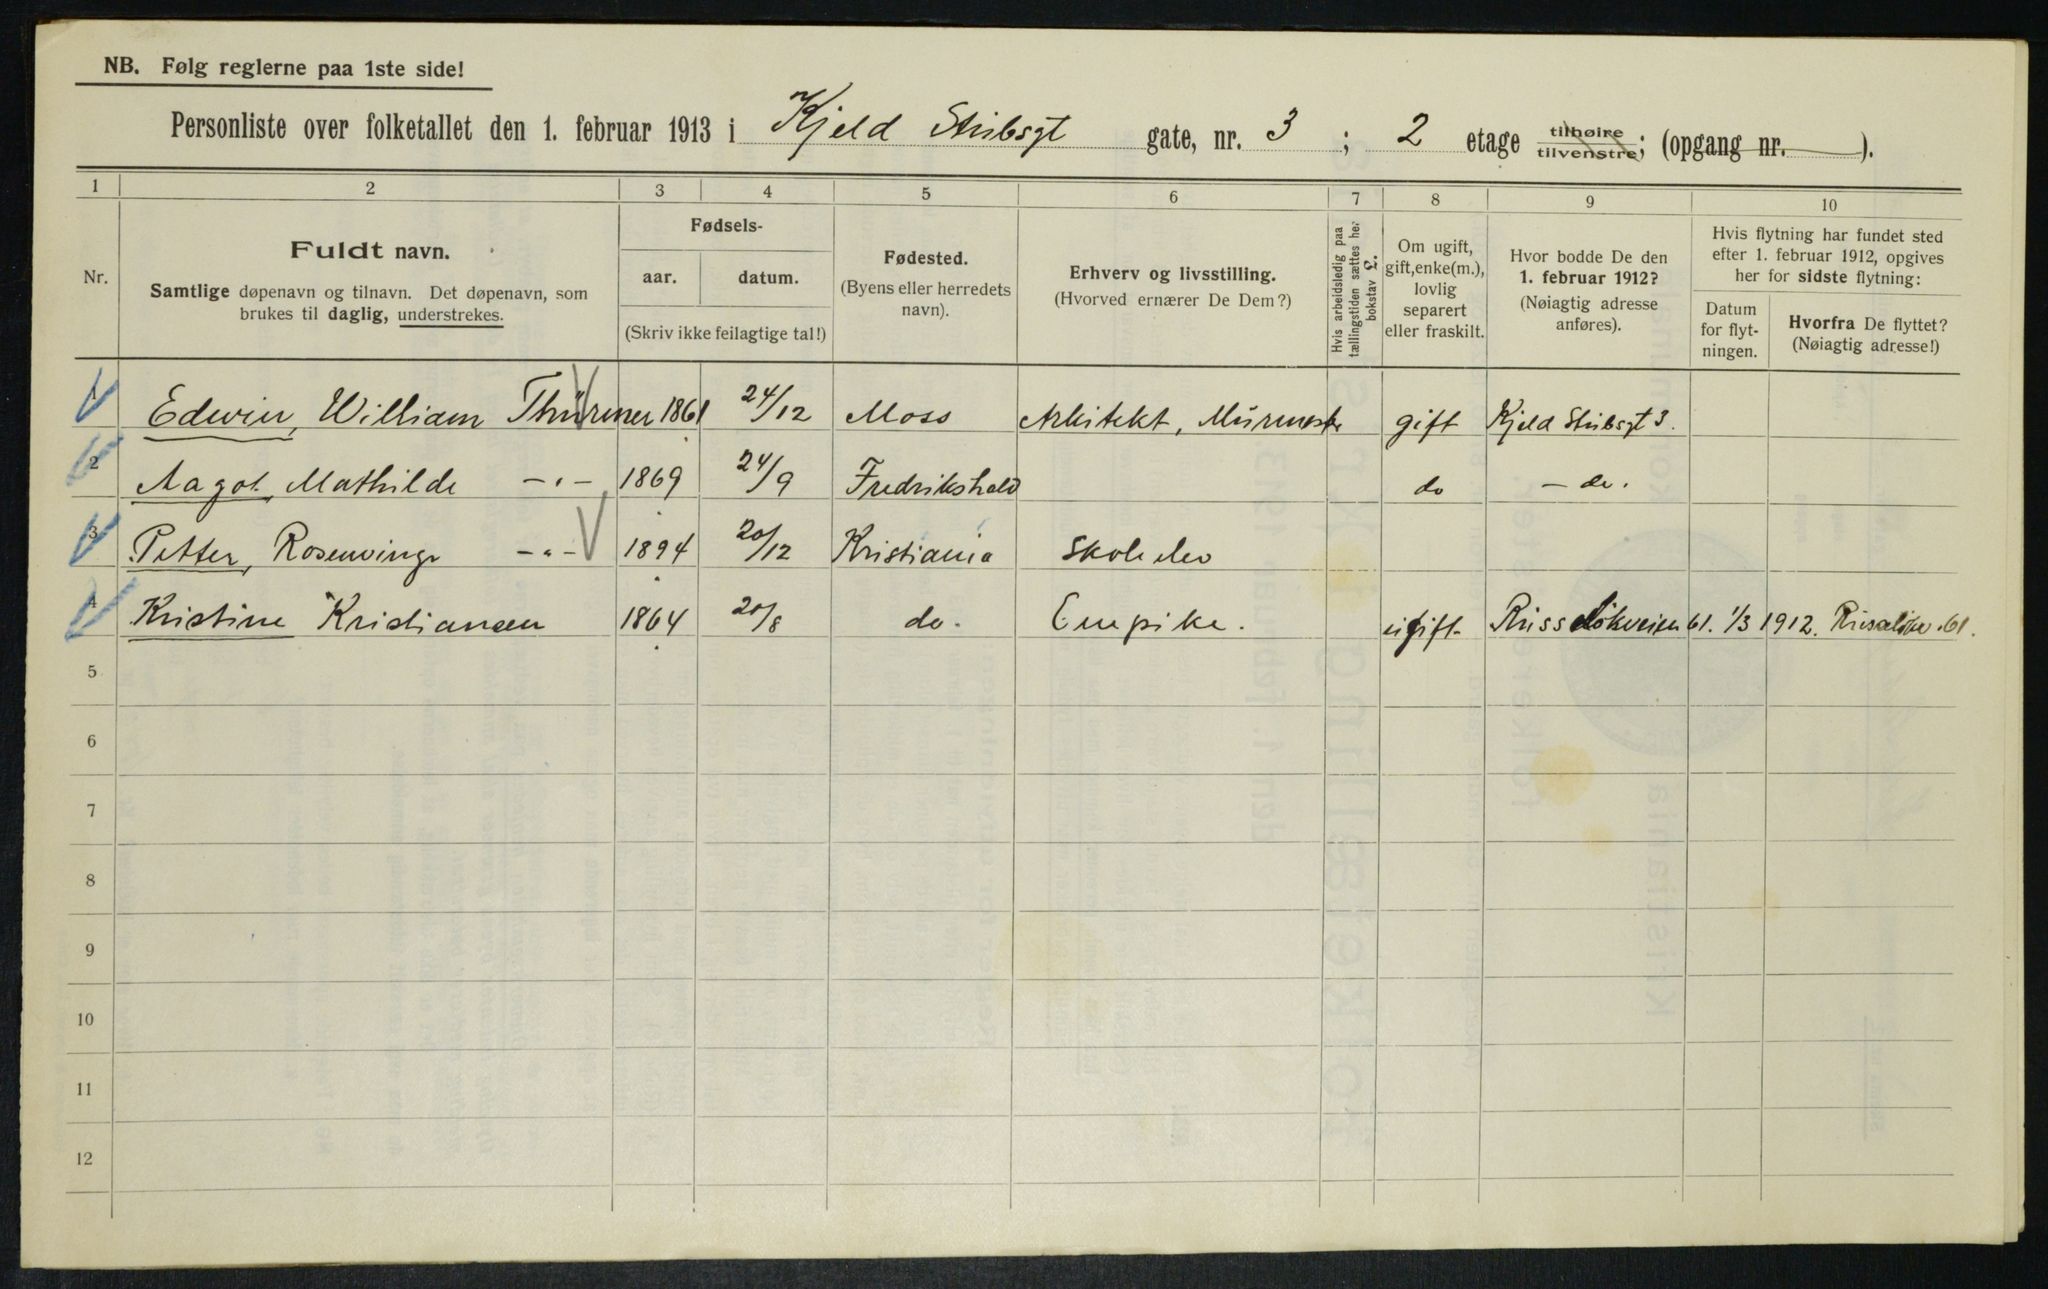 NB. Følg reglerne paa 1ste side!
Personliste over folketallet den 1. februar 1913 i Kjeld Stubsgt gate, nr. 3 ; 2 etage tilhøire tilvenstre; (opgang nr. ).
1 2 3 4 5 6 7 8 9 10
Nr.
Fuldt navn.
Samtlige døpenavn og tilnavn. Det døpenavn, som
brukes til daglig, understrekes.
Fødsels-
aar. datum.
(Skriv ikke feilagtige tal!)
Fødested.
(Byens eller herredets
navn).
Erhverv og livsstilling.
(Hvorved ernærer De Dem?)
Hvis arbeidsledig paa
tællingstiden sættes her
bokstav L.
Om ugift,
gift, enke(m.),
lovlig
separert
eller fraskilt.
Hvor bodde De den
1. februar 1912?
(Nøiagtig adresse
anføres).
Hvis flytning har fundet sted
efter 1. februar 1912, opgives
her for sidste flytning:
Datum
for flyt-
ningen.
Hvorfra De flyttet?
(Nøiagtig adresse!)
1 Edwin, William Thürmer 1861 24/12 Moss Arkitekt, Murmester gift Kjeld Stubsgt 3.
2 Aagot, Mathilde -"- 1869 24/9 Fredrikshald do - do.
3 Petter, Rosenvinge -"- 1894 20/12 Kristiania Skoleelev
4 Kristine Kristiansen 1864 20/8 do. Enepike. ugift Russeløkveien 61. 1/3 1912. Russeløkv. 61.
5
6
7
8
9
10
11
12